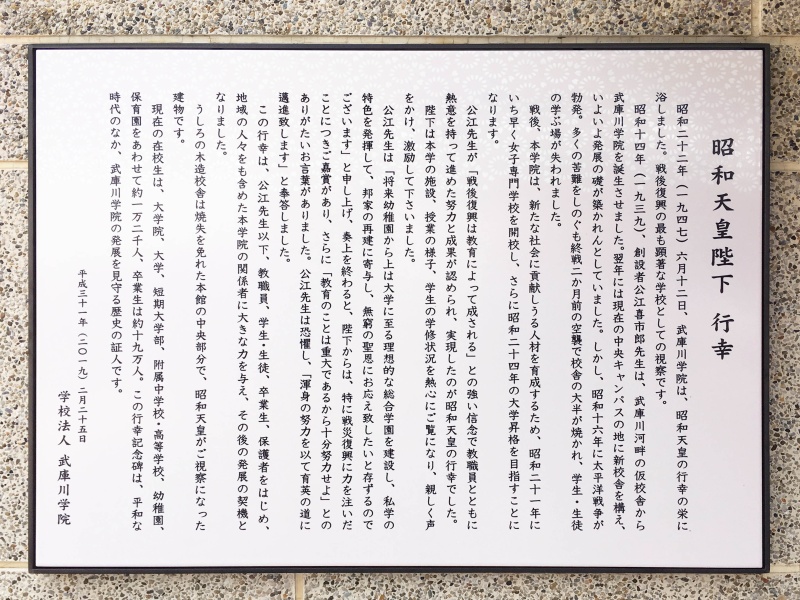 昭和天皇陛下 行幸
昭和二十二年（一九四七）六月十二日、武庫川学院は、昭和天皇の行幸の栄に
浴しました。戦後復興の最も顕著な学校としての視察です。
昭和十四年（一九三九）、創設者公江喜市郎先生は、武庫川河畔の仮校舎から
武庫川学院を誕生させました。翌年には現在の中央キャンパスの地に新校舎を構え、
いよいよ発展の礎が築かれんとしていました。しかし、昭和十六年に太平洋戦争が
勃発。多くの苦難をしのぐも終戦二か月前の空襲で校舎の大半が焼かれ、学生・生徒
の学ぶ場が失われました。
戦後、本学院は、新たな社会に貢献しうる人材を育成するため、昭和二十一年に
いち早く女子専門学校を開校し、さらに昭和二十四年の大学昇格を目指すことに
なります。
公江先生が「戦後復興は教育によって成される」との強い信念で教職員とともに
熱意を持って進めた努力と成果が認められ、実現したのが昭和天皇の行幸でした。
陛下は本学の施設、授業の様子、学生の学修状況を熱心にご覧になり、親しく声
をかけ、激励して下さいました。
公江先生は「将来幼稚園から上は大学に至る理想的な総合学園を建設し、私学の
特色を発揮して、邦家の再建に寄与し、無窮の聖恩にお応え致したいと存ずるので
ございます」と申し上げ、奏上を終わると、陛下からは、特に戦災復興に力を注いだ
ことにつきご嘉賞があり、さらに「教育のことは重大であるから十分努力せよ」との
ありがたいお言葉がありました。公江先生は恐懼し、「渾身の努力を以て育英の道に
邁進致します」と奉答しました。
この行幸は、公江先生以下、教職員、学生・生徒、卒業生、保護者をはじめ、
地域の人々をも含めた本学院の関係者に大きな力を与え、その後の発展の契機と
なりました。
うしろの木造校舎は焼失を免れた本館の中央部分で、昭和天皇がご視察になった
建物です。
現在の在校生は、大学院、大学、短期大学部、附属中学校・高等学校、幼稚園、
保育園をあわせて約一万二千人、卒業生は約十九万人。この行幸記念碑は、平和な
時代のなか、武庫川学院の発展を見守る歴史の証人です。
平成三十一年（二〇一九）二月二十五日
学校法人 武庫川学院